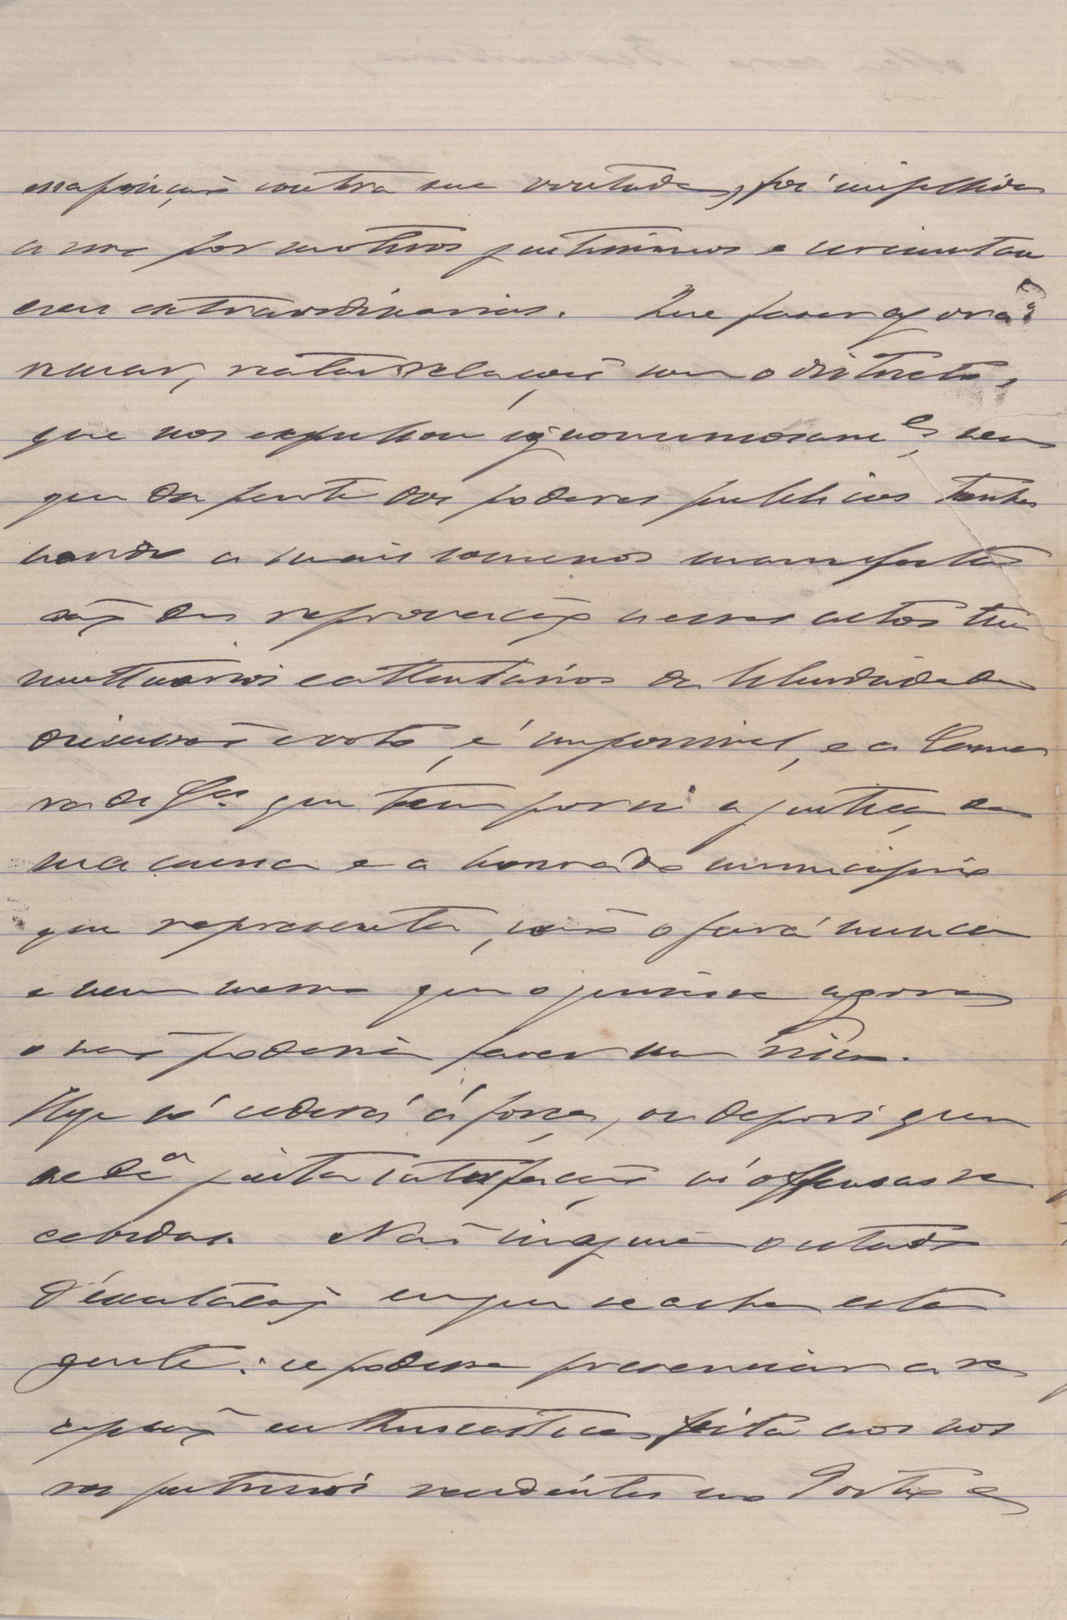 essa posição contra sua vontade, foi impellida
a isso por motivos justissimos e circunstan
cias extraordinarias. Que fazer agora?
recuar, reatar relações com o districto,
que nos expulsou ignominiosam.e, sem
que da parte dos poderes publicos tenha
havido a mais somenos manifesta
ção de reprovação a esses actos tu
multuarios e attentarios da liberdade de
discussão e voto, é impossivel, e a Cama
ra de G.es que tem por si a justiça da
sua causa e a honra do municipio
que representa, não o fará nunca
e nem mesmo que o quizesse agora
o não poderia fazer sem risco.
Hoje só cederá á força, ou depois que
se dê justa satisfação ás offensas re
cebidas. Não imagina o estado
d'exaltação em que se acha esta
gente: se podesse presenciar a re
cepção enthusiastica feita aos nos
sos patricios residentes no Porto e